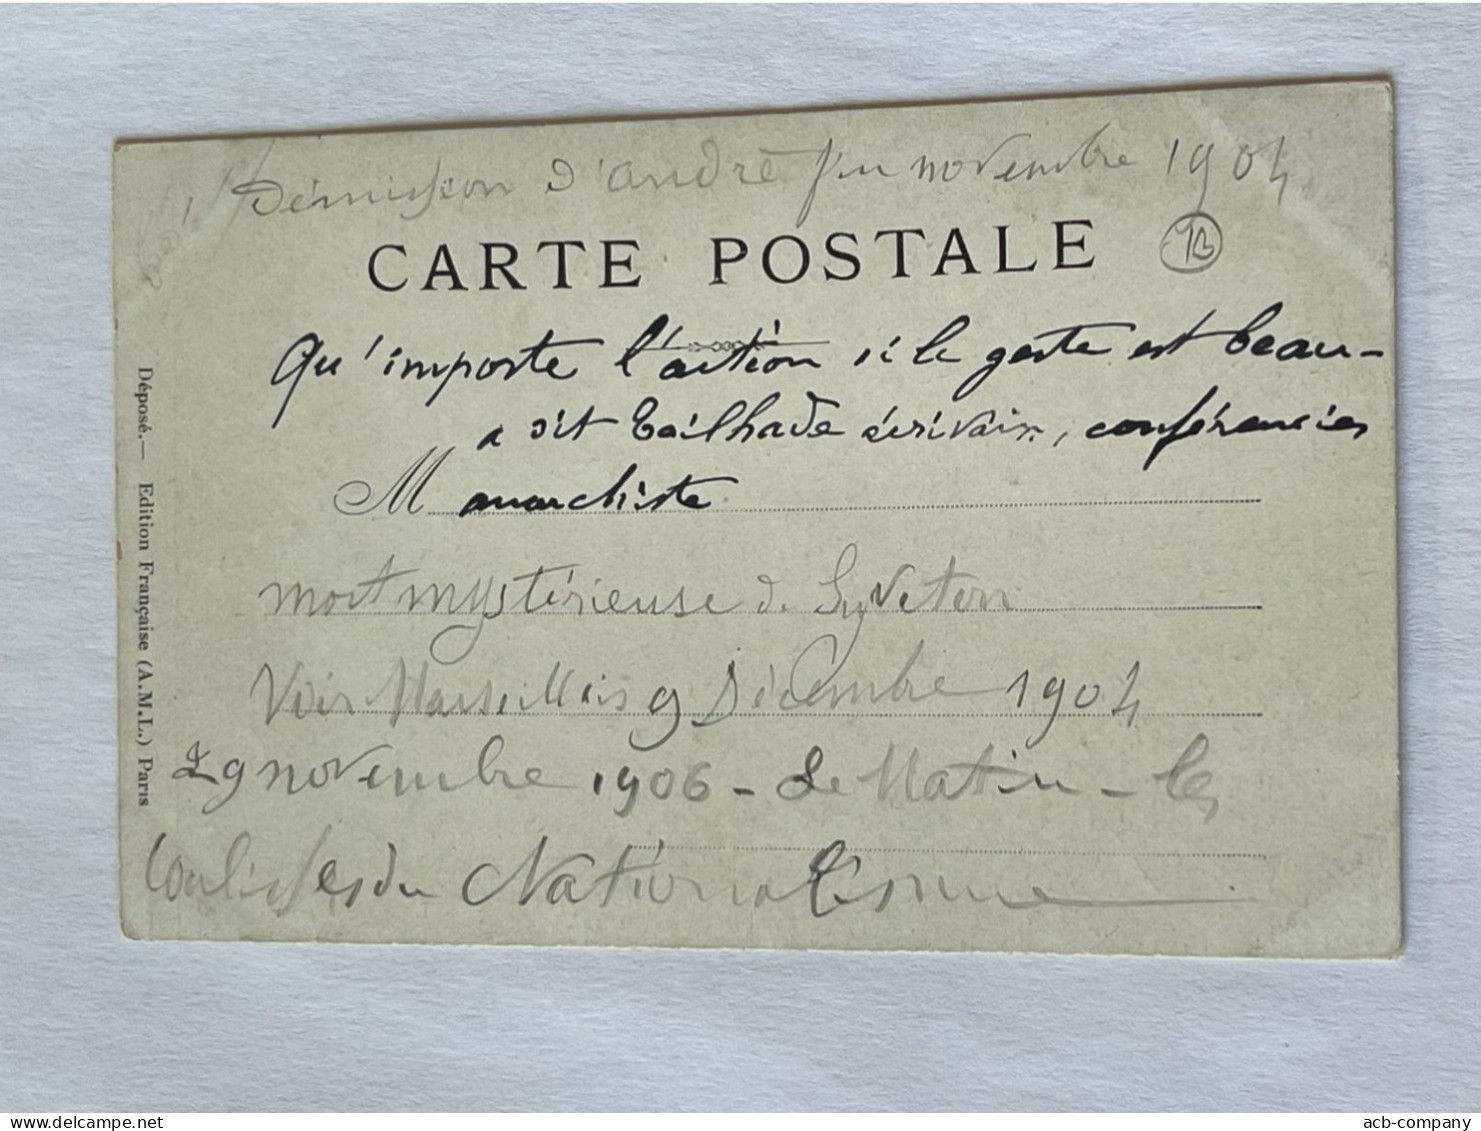 Démission d'André fin novembre 1904
CARTE POSTALE
Qu'importe l'action si le geste est beau-
a dit Tailhade écrivain, conférencier
M anarchiste
mort mystérieuse de Syveton
Voir Marseillais 9 Décembre 1904
29 novembre 1906 - Le Matin - les
Coulisses du Nationalisme
Déposé. — Edition Française (A.M.L.) Paris
acb-company